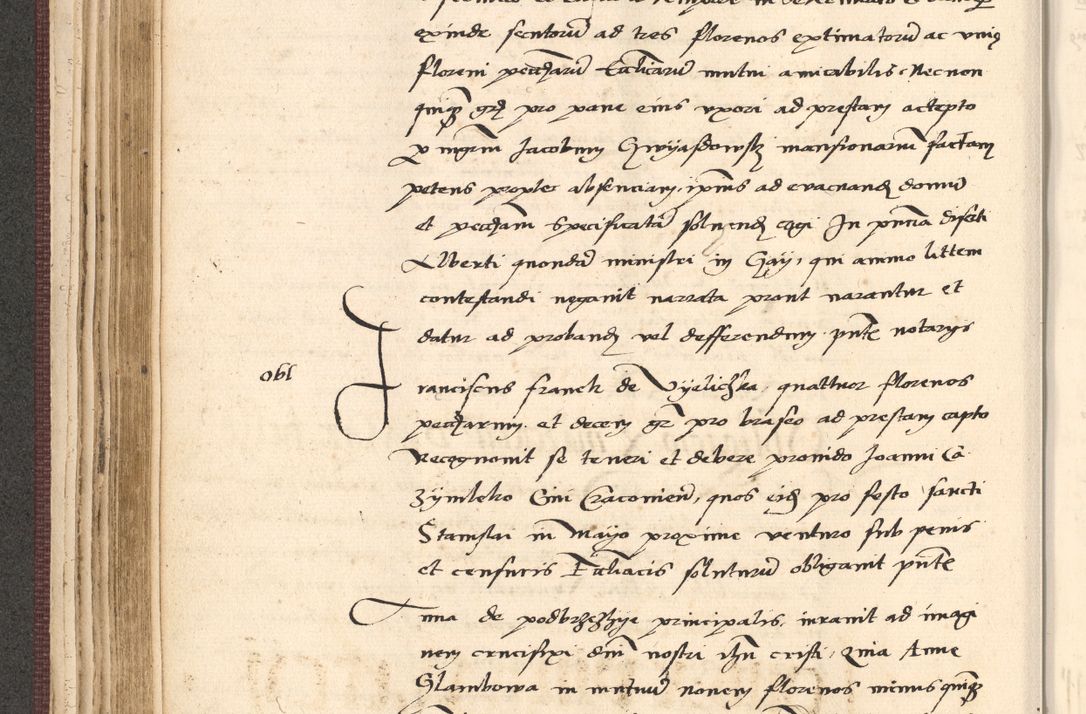 exinde secutorum ad tres florenos extimatorum ac unius
floreni pecuniarum mutui amicabilis. Necnon
quinque gr pro pane eius uxori ad prestam accepto
per mgrm Jacobum mansionarium factam
petens propter absenciam ipsius ad evacuand domum
et pecuniam specificatam solvend cogi In pncia discreti
Alberti quondam ministri in Gay, qui animo littem
contestandi negavit narrata prout narantur et
datur ad proband vel defferendum pnte notarys
obl
Franciscus franek de Vyelichka, quattuor florenos
pecuniarum et decem gr pro braseo ad prestam capto
Recognovit se teneri et debere provido Joanni Ca
zymlrko Civi Cracovien, quos eid pro festo sancti
Stanislai in Mayo proxime venturo sub penis
et censuris Ecclesiasticis soluturum obligavit pnte
Anna de podbrzezye principalis, iuravit ad imagi
nem crucifixi dni nostri ihu cristi, Quia Anne
Glambowa in mutuum novem florenos minus quinque